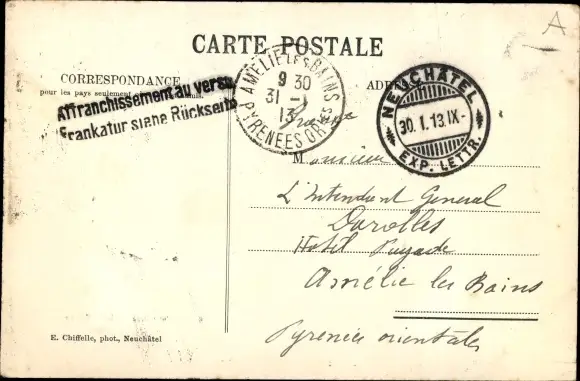 A
CARTE POSTALE
CORRESPONDANCE
pour les pays seulement
Affranchissement au verso
Frankatur siehe Rückseite
AMELIE LES BAINS
9 30
31 - 1
13
PYRENEES ORles
NEUCHÂTEL
30.1.13.IX-
EXP. LETTR.
France
Monsieur
L'Intendant General
Darolles
Hotel Pujade
Amélie les Bains
Pyrenées orientales
E. Chiffelle, phot., Neuchâtel